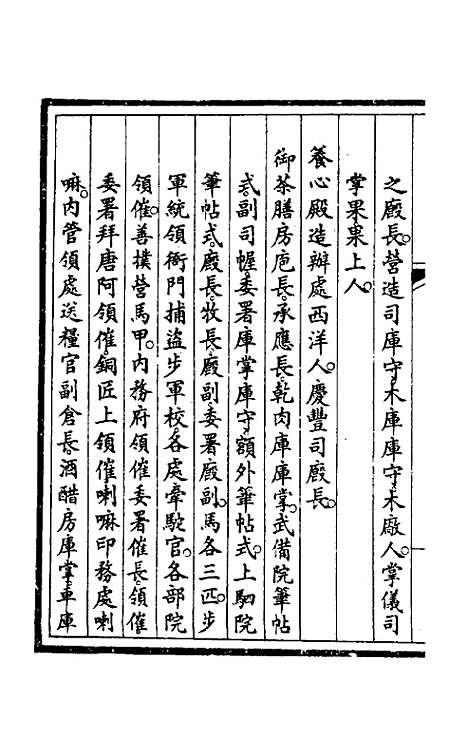 之廄長營造司庫守木庫庫守木廠人掌儀司
掌果果上人
養心殿造辦處西洋人慶豐司廄長
御茶膳房庖長承應長乾肉庫庫掌武備院筆帖
式副司幄委署庫掌庫守額外筆帖式上駟院
筆帖式廄長牧長廄副委署廄副馬各三匹步
軍統領衙門捕盜步軍校各處牽駝官各部院
領催善撲營馬甲內務府領催委署催長領催
委署拜唐阿領催銅匠上領催喇嘛印務處喇
嘛內管領處送糧官副倉長酒醋房庫掌車庫